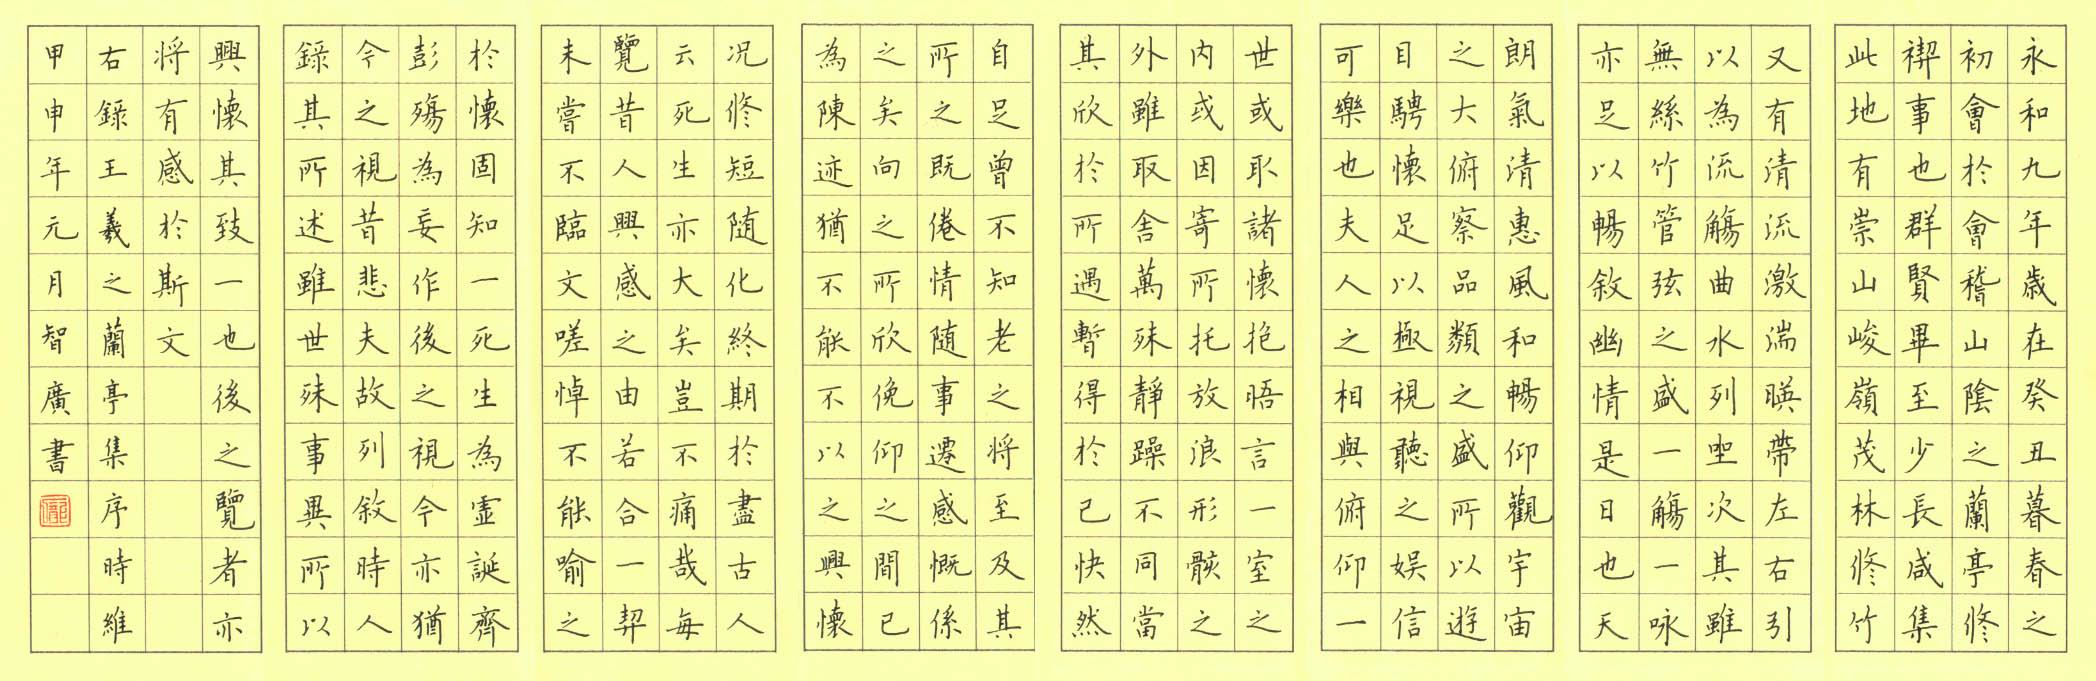 永和九年歲在癸丑暮春之
初會於會稽山陰之蘭亭修
禊事也群賢畢至少長咸集
此地有崇山峻嶺茂林修竹
又有清流激湍暎帶左右引
以為流觴曲水列坐次其雖
無絲竹管弦之盛一觴一咏
亦足以暢敘幽情是日也天
朗氣清惠風和暢仰觀宇宙
之大俯察品類之盛所以遊
目騁懷足以極視聽之娛信
可樂也夫人之相與俯仰一
世或取諸懷抱悟言一室之
内或因寄所托放浪形骸之
外雖取舍萬殊靜躁不同當
其欣於所遇暫得於己快然
自足曾不知老之将至及其
所之既倦情随事遷感慨係
之矣向之所欣俛仰之間已
為陳迹猶不能不以之興懷
况修短随化終期於盡古人
云死生亦大矣豈不痛哉每
覽昔人興感之由若合一契
未嘗不臨文嗟悼不能喻之
於懷固知一死生為虛誕齊
彭殤為妄作後之視今亦猶
今之視昔悲夫故列敘時人
錄其所述雖世殊事異所以
興懷其致一也後之覽者亦
将有感於斯文
右錄王羲之蘭亭集序時維
甲申年元月智廣書